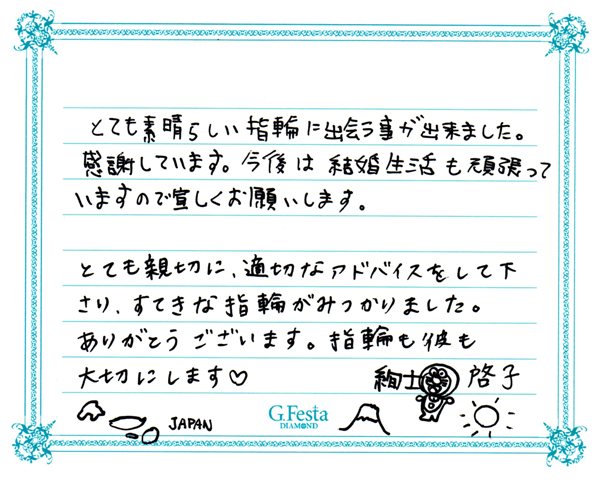 とても素晴らしい指輪に出会う事が出来ました。
感謝しています。今後は結婚生活も頑張って
いますので宜しくお願いします。
とても親切に、適切なアドバイスをして下
さり、すてきな指輪がみつかりました。
ありがとうございます。指輪も彼も
大切にします♡
絢士 啓子
JAPAN
G.Festa
DIAMOND